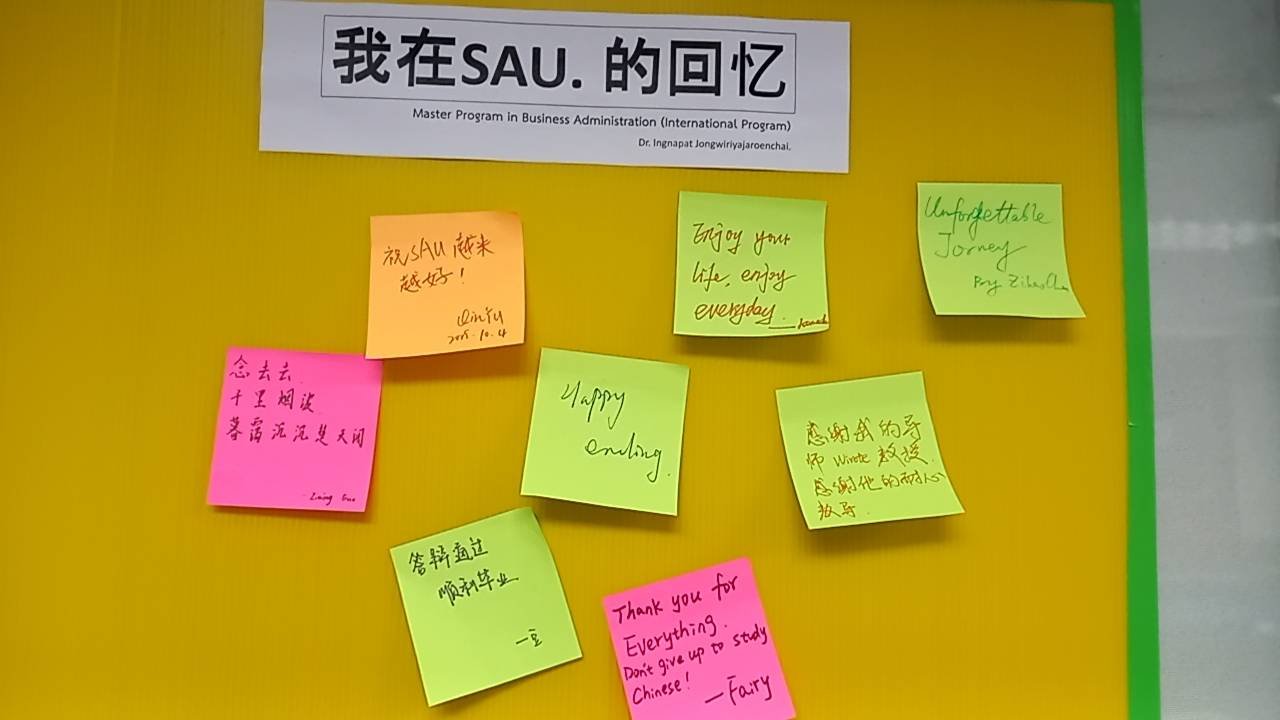 我在SAU. 的回忆
Master Program in Business Administration (International Program)
Dr. Ingnapat Jongwiriyajaroenchai.
祝SAU 越来
越好！
QinYu
2025.10.4
Enjoy your
life, enjoy
everyday.
Unforgettable
Jorney
By
念去去
千里烟波
暮霭沉沉楚天阔
Happy
ending.
感谢我的导
师 Wirote 教授.
感谢他的耐心
教导.
答辩通过
顺利毕业
一豆
Thank you for
Everything.
Don't give up to study
Chinese!
—Fairy